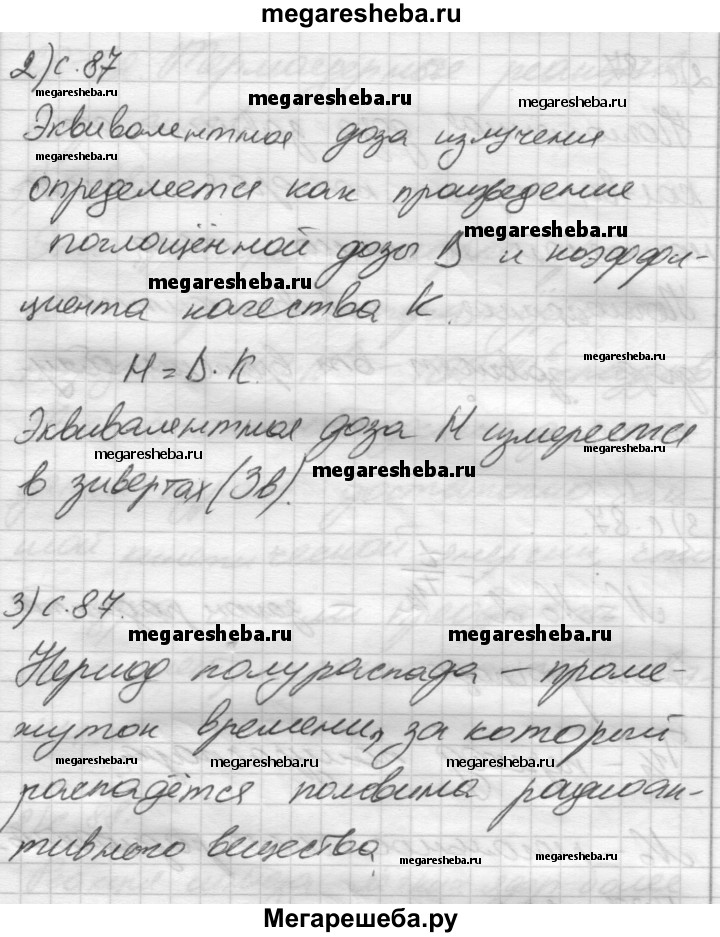 megaresheba.ru
2) с. 87
megaresheba.ru megaresheba.ru megaresheba.ru
Эквивалентная доза излучения
megaresheba.ru
определяется как произведение
поглощённой дозы D и коэффи-
megaresheba.ru
megaresheba.ru
циента качества К.
H = D · К.
megaresheba.ru
Эквивалентная доза H измеряется
megaresheba.ru megaresheba.ru
в зивертах (Зв).
megaresheba.ru
3) с. 87.
megaresheba.ru megaresheba.ru
Период полураспада – проме-
жуток времени, за который
megaresheba.ru megaresheba.ru megaresheba.ru
распадётся половина радиоак-
тивного вещества
megaresheba.ru megaresheba.ru
Мегарешеба.ру